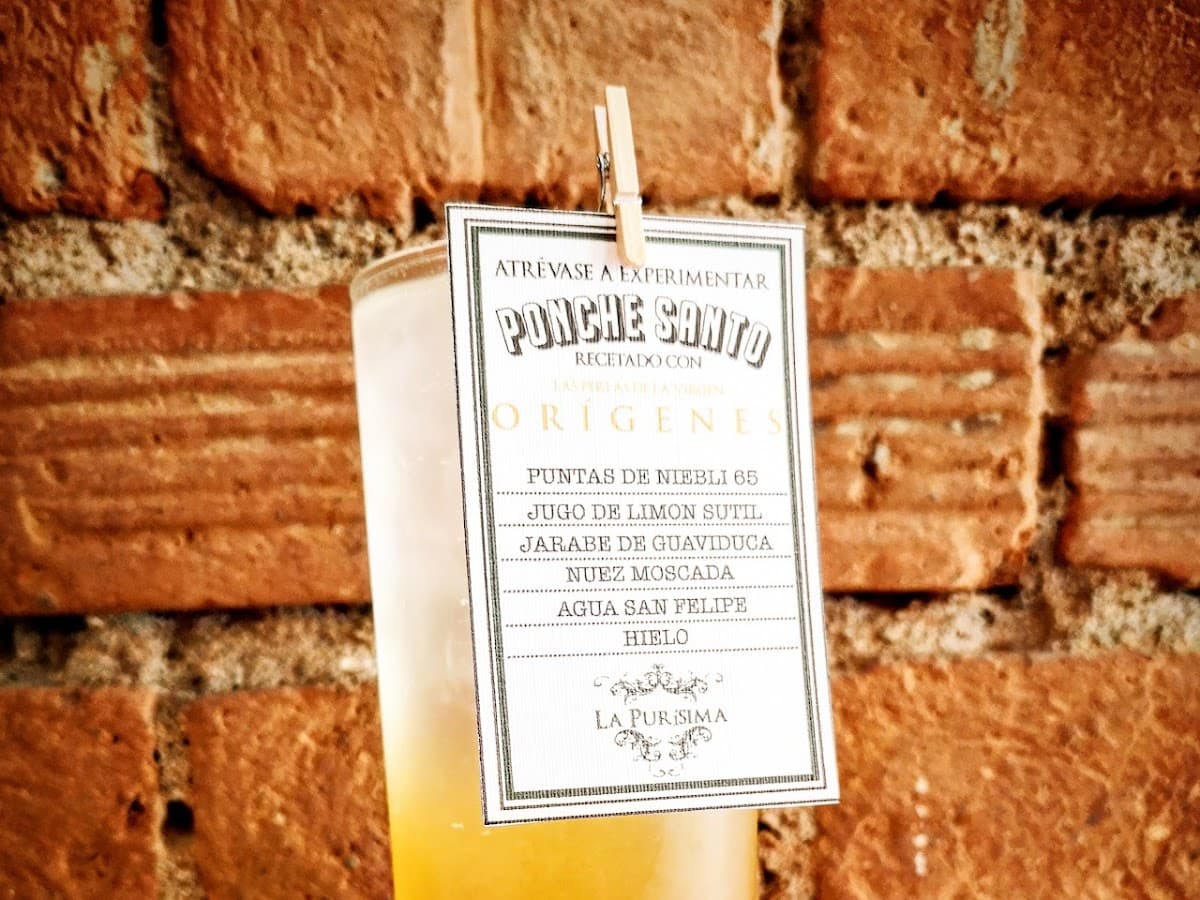 ATRÉVASE A EXPERIMENTAR
PONCHE SANTO
RECETADO CON
LAS PERLAS DE LA VIRGEN
ORÍGENES
PUNTAS DE NIEBLI 65
JUGO DE LIMON SUTIL
JARABE DE GUAVIDUCA
NUEZ MOSCADA
AGUA SAN FELIPE
HIELO
LA PURÍSIMA